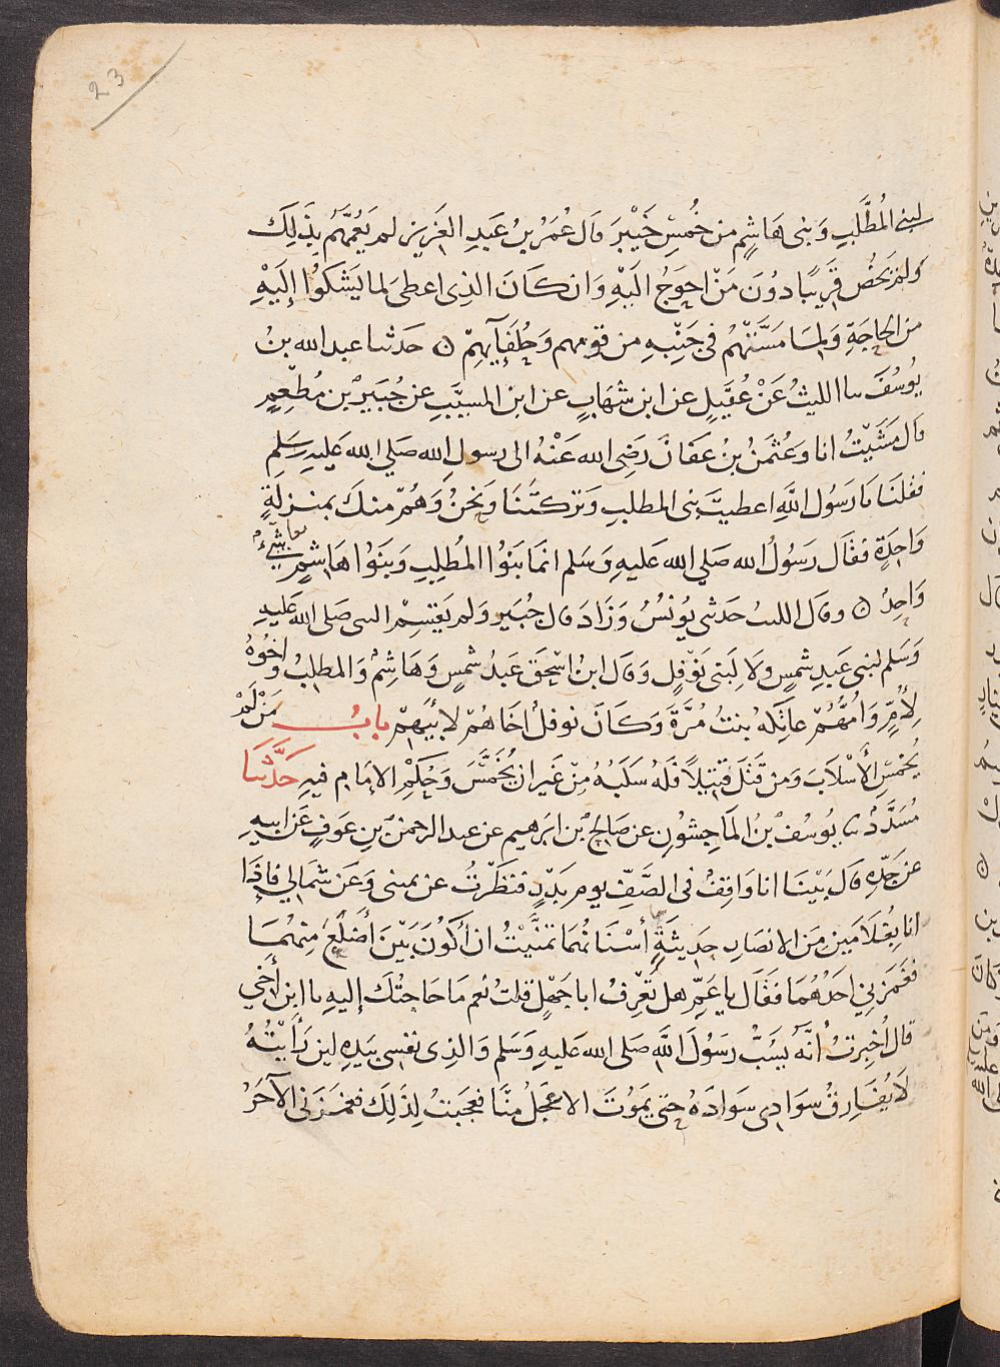 23
لبني المُطَّلِبِ وَبنى هَاشِمٍ من خُمسِ خَيْبَرَ قال عُمَرُ بنُ عَبدِ العَزيزِ لم يَعُمَّهُم بِذَلِكَ
ولم يَخُصَّ قَرِيبًا دوُنَ مَنْ احوَجُ الَيْهِ وَان كَانَ الذِى اعطى لما يَشكوُا إلَيْهِ
من الحاجَةِ وَلما مَسَّتْهُم في جَنْبِهِ من قومهم وَحُلَفَآئِهِمْ ۞ حَدثنا عبد الله بنُ
يوُسُفَ نا الليثُ عَنْ عُقَيْلٍ عن ابن شهَابٍ عن ابن المسيَّبِ عن جُبَيرِ بْن مُطْعِمٍ
قال مَشَيْتُ انا وعُثمنُ بنُ عَفانَ رَضِى الله عَنْهُ الى رسولِ الله صَلي الله عَليهِ وسَلم
فقلنَا يا رَسوُل اللَّهِ اعطيتَ بنى المطلبِ وَتركتَنَا وَنحنُ وَهُمْ منكَ بمنزلَةٍ
وَاحِدَةٍ فقَال رَسوُلُ الله صَلي الله عَليهِ وَسَلم انمَا بَنوُا المُطلِبِ وَبَنوُا هَاشِمٍ شَيْءٌ
وَاحِدٌ ۞ وقال الليث حَدثنى يوُنسُ وَزَادَ قال جُبَير وَلم يَقسِمْ النبى صَلى الله عَليهِ
وَسَلم لبنى عَبدِ شمسٍ ولا لِبَنى نَوْفلٍ وَقال ابنُ اسْحٰق عَبدُ شمسٍ وَهَاشِمٌ وَالمطلبُ اخوُةٌ
لأُمٍّ وَامُّهُمْ عاتِكَهُ بنتُ مُرَّةَ وَكانَ نوفلٌ اخَاهُمْ لابيهمْ بابُ مَنْ لَمْ
يُخَمّسِ الأَسْلابَ وَمن قَتَلَ قتِيلاً فَلهُ سَلَبُهُ مِنْ غَير ان يُخَمَّسَ وَحُكمِ الامَام فيهِ حَدَّثنا
مُسَدَّدٌ نا يوُسُفُ بنُ المَاجِشوُنِ عن صَالح بْن ابرَهيم عن عبد الرحمن بنِ عَوفٍ عَن ابيهِ
عن جَدِّهِ قال بَيْنَا انا وَاقِفٌ فى الصَّفِّ يوم بَدْرٍ فنَظَرْتُ عن يمينى وَعَن شمَالي فإذَا
انا بِغُلَامَينِ مِنَ الانصَارِ حَدِيثَةٍ أَسْنَانُهُمَا تمنَّيْتُ ان أَكوُنَ بَيْنَ أَضْلَعَ مِنهُمَا
فغَمَزَنِي احَدُهُمَا فقَالَ يا عَمِّ هل تَعْرِفُ ابا جَهْلٍ قلتُ نعم مَا حَاجتُكَ إليهِ يا ابن أخي
قال أُخبِرتُ أَنَّهُ يَسُبُّ رَسوُلَ اللَّه صَلى الله عَليهِ وَسَلم وَالذِى نفسِى بيَدِهِ لين رَأَيْتُهُ
لَا يُفَارِقُ سوَادِى سوَادَهُ حَتى يموُتَ الاعجَلُ مِنَّا فعجبتُ لِذَلِكَ فغمَزَنِى الآخَرُ